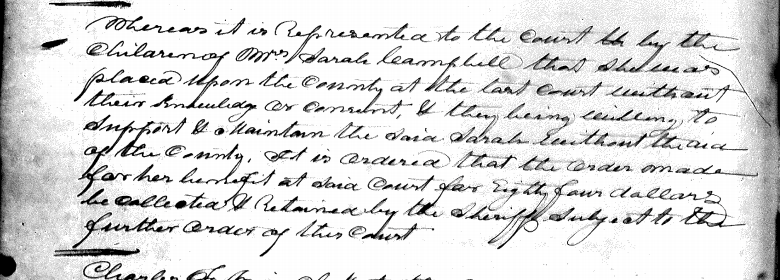 Whereas it is Represented to the Court by the
Children of Mrs Sarah Campbell that She was
placed upon the County at the last Court without
their Knowledge or Consent, & they being willing to
Support & Maintain the said Sarah without the aid
of the County. It is ordered that the order made
for her benefit at said Court for Eighty four dollars
be collected & Retained by the Sheriff Subject to the
further order of this Court
Charles